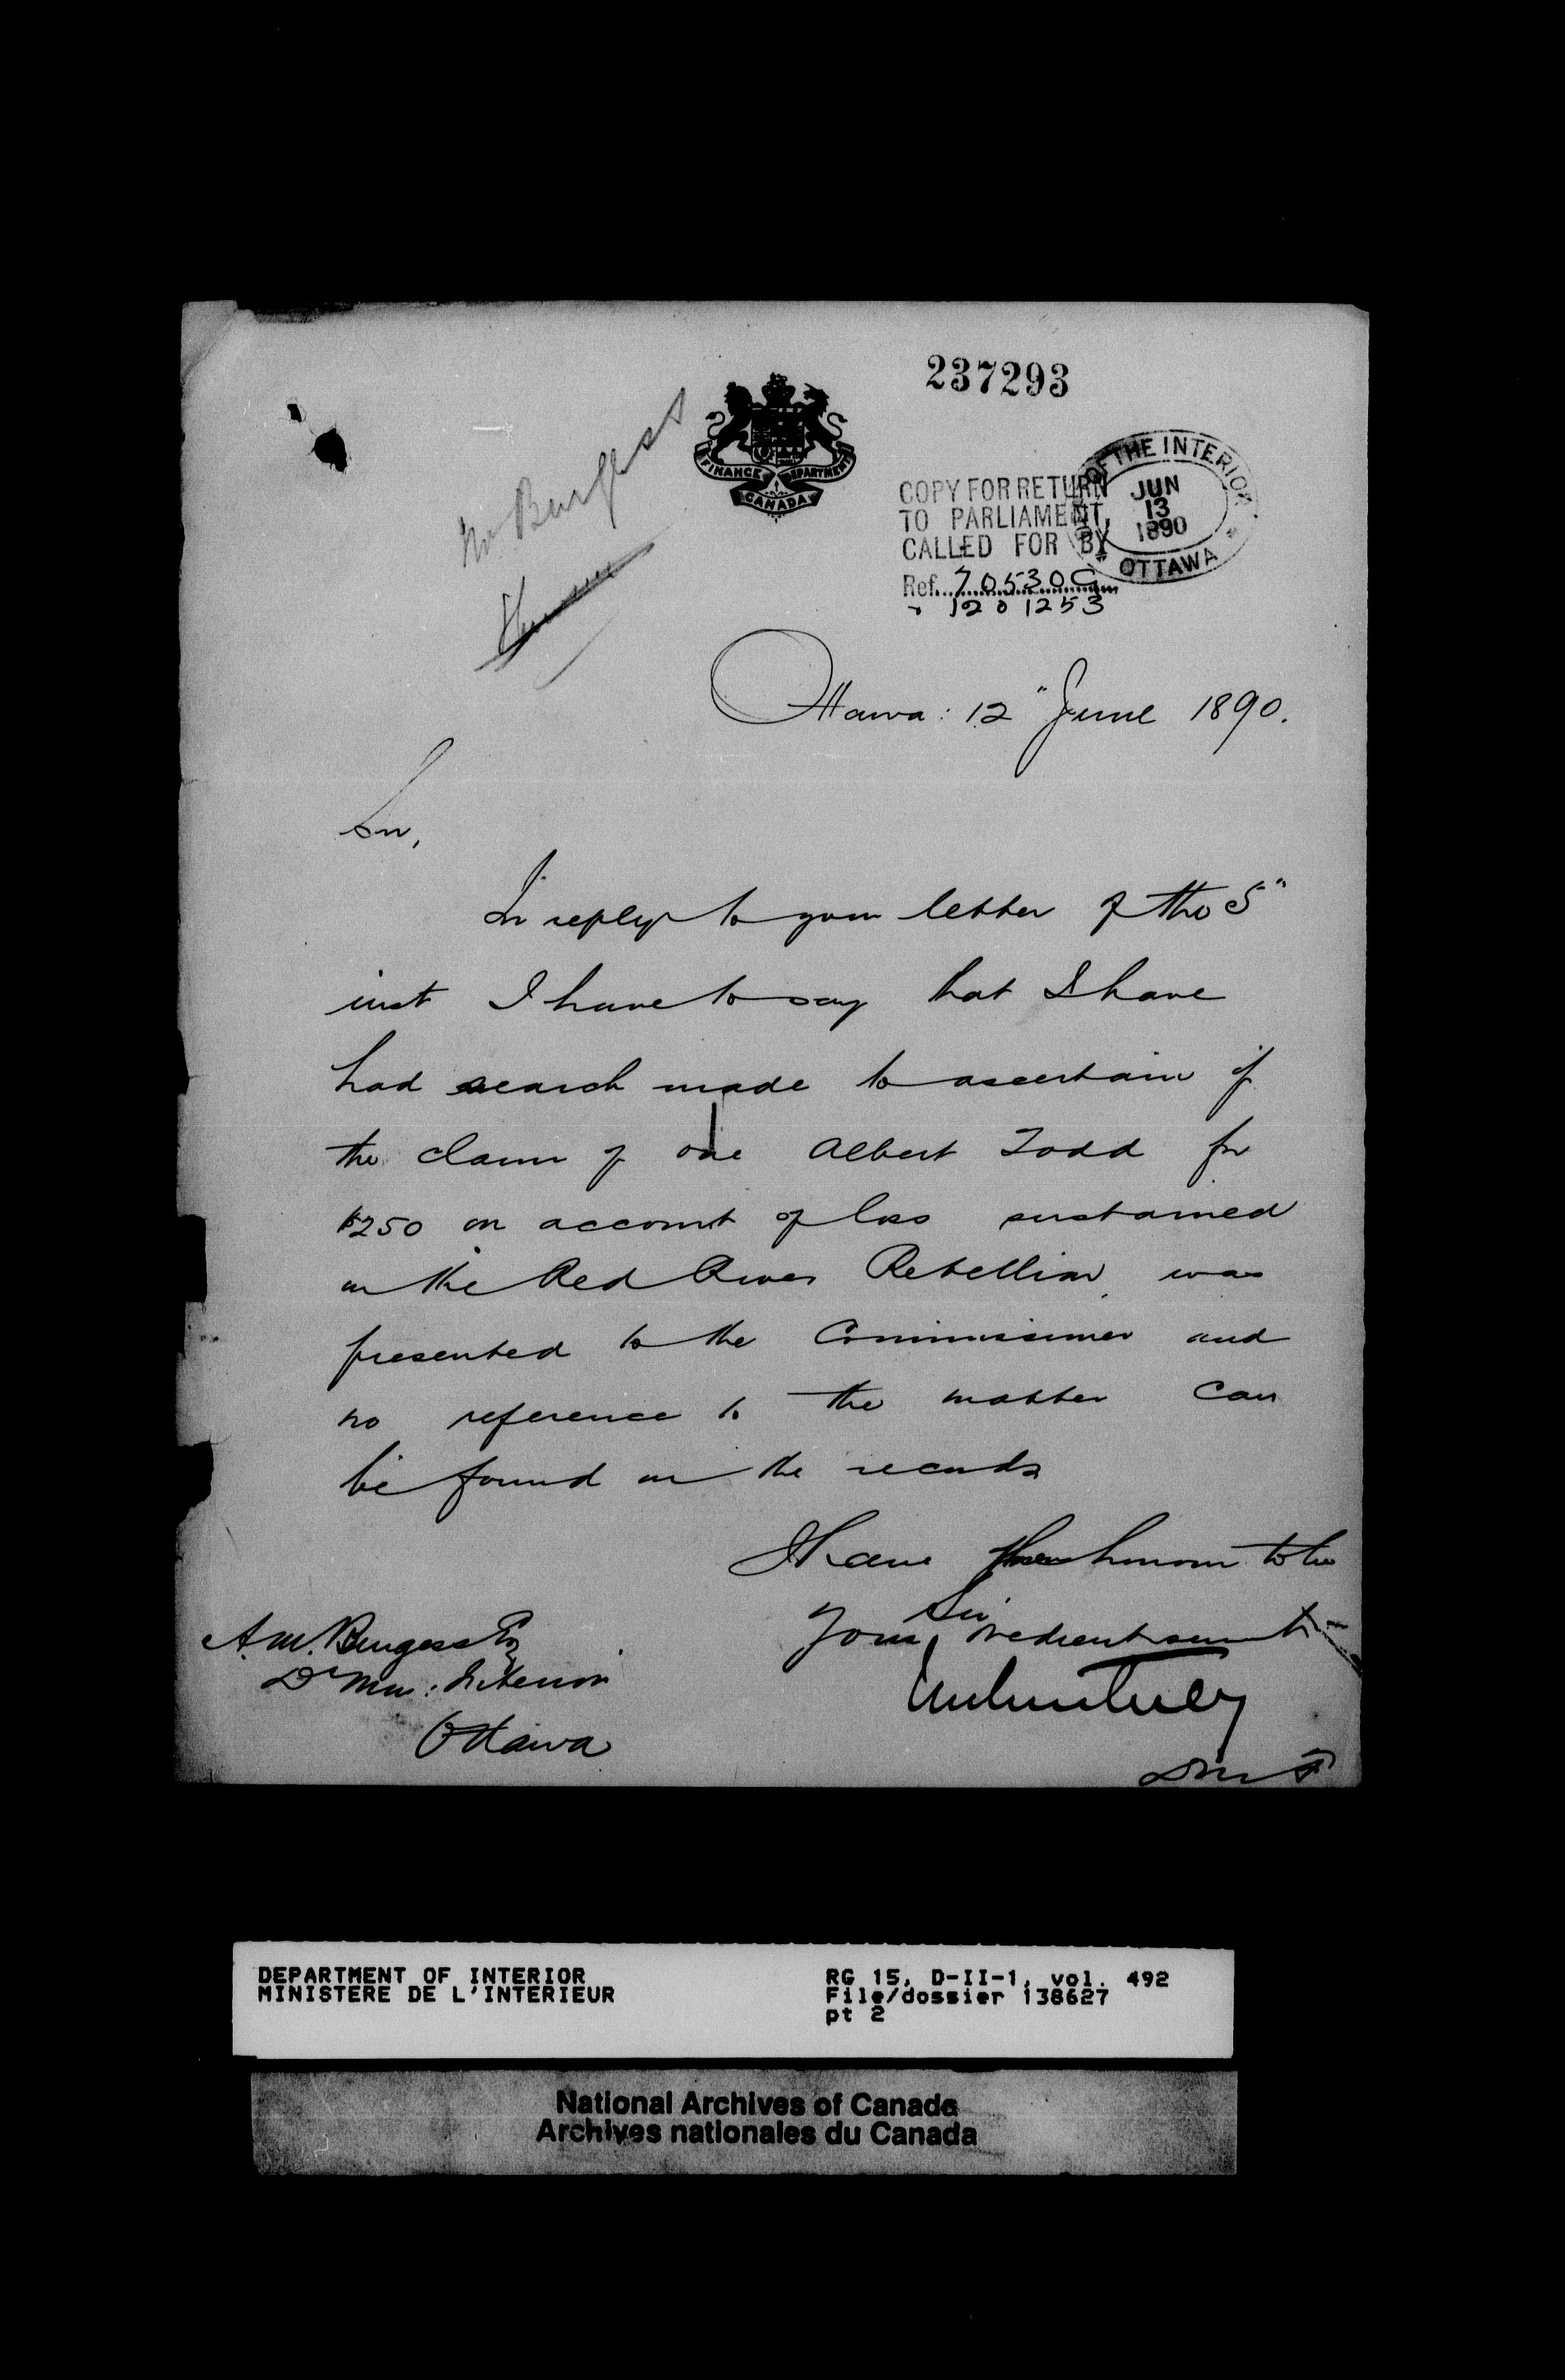 237293
Mr Burgess
FINANCE DEPARTMENT
CANADA
COPY FOR RETURN
TO PARLIAMENT,
CALLED FOR BY
Ref. 70530G
1201253
OF THE INTERIOR
JUN
13
1890
OTTAWA
Ottawa: 12" June 1890.
Sir,
In reply to your letter of the 5"
inst I have to say that I have
had search made to ascertain if
the claim of one Albert Todd for
$250 on account of loss sustained
in the Red River Rebellion, was
presented to the Commissioner and
no reference to the matter can
be found in the records
I have the honour to be
Sir,
Your obedient servant
A. M. Burgess Esq
D. Min: Interior
Ottawa
DMF
DEPARTMENT OF INTERIOR
MINISTERE DE L'INTERIEUR
RG 15, D-II-1, vol. 492
File/dossier 138627
pt 2
National Archives of Canada
Archives nationales du Canada